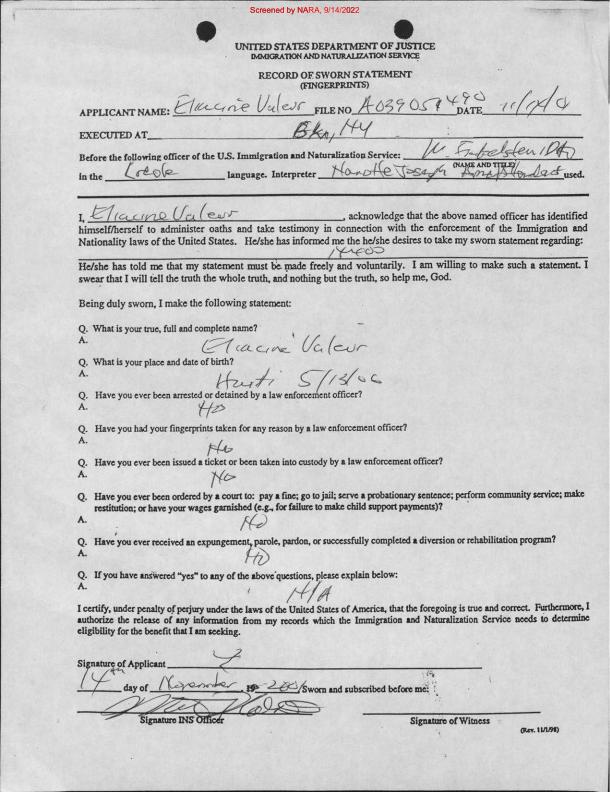 Screened by NARA, 9/14/2022
UNITED STATES DEPARTMENT OF JUSTICE
IMMIGRATION AND NATURALIZATION SERVICE
RECORD OF SWORN STATEMENT
(FINGERPRINTS)
APPLICANT NAME: Eliacine Valeur FILE NO A039051490 DATE 11/14/01
EXECUTED AT Bkn, NY
Before the following officer of the U.S. Immigration and Naturalization Service:
(NAME AND TITLE)
in the Creole language. Interpreter Joseph used.
I, Eliacine Valeur, acknowledge that the above named officer has identified
himself/herself to administer oaths and take testimony in connection with the enforcement of the Immigration and
Nationality laws of the United States. He/she has informed me the he/she desires to take my sworn statement regarding:
N400
He/she has told me that my statement must be made freely and voluntarily. I am willing to make such a statement. I
swear that I will tell the truth the whole truth, and nothing but the truth, so help me, God.
Being duly sworn, I make the following statement:
Q. What is your true, full and complete name?
A. Eliacine Valeur
Q. What is your place and date of birth?
A. Haiti 5/13/06
Q. Have you ever been arrested or detained by a law enforcement officer?
A. No
Q. Have you had your fingerprints taken for any reason by a law enforcement officer?
A. No
Q. Have you ever been issued a ticket or been taken into custody by a law enforcement officer?
A. No
Q. Have you ever been ordered by a court to: pay a fine; go to jail; serve a probationary sentence; perform community service; make
restitution; or have your wages garnished (e.g., for failure to make child support payments)?
A. No
Q. Have you ever received an expungement, parole, pardon, or successfully completed a diversion or rehabilitation program?
A. No
Q. If you have answered "yes" to any of the above questions, please explain below:
A. N/A
I certify, under penalty of perjury under the laws of the United States of America, that the foregoing is true and correct. Furthermore, I
authorize the release of any information from my records which the Immigration and Naturalization Service needs to determine
eligibility for the benefit that I am seeking.
Signature of Applicant
14th day of November 19 2001 Sworn and subscribed before me:
Signature INS Officer Signature of Witness
(Rev. 11/1/98)